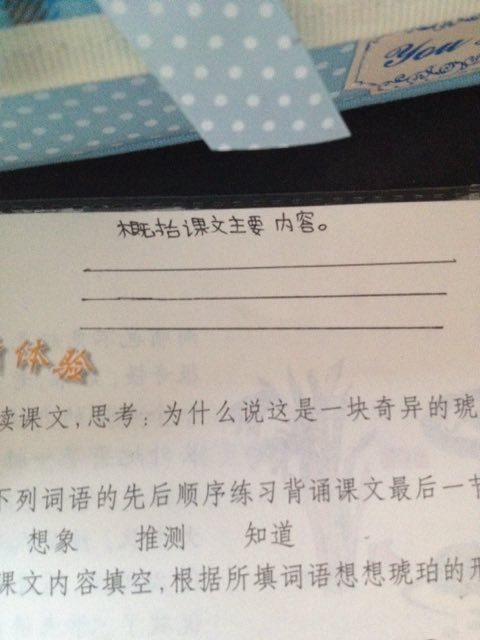 You
概抬课文主要内容。
体验
读课文,思考:为什么说这是一块奇异的琥
下列词语的先后顺序练习背诵课文最后一节
想象 推测 知道
课文内容填空,根据所填词语想想琥珀的形